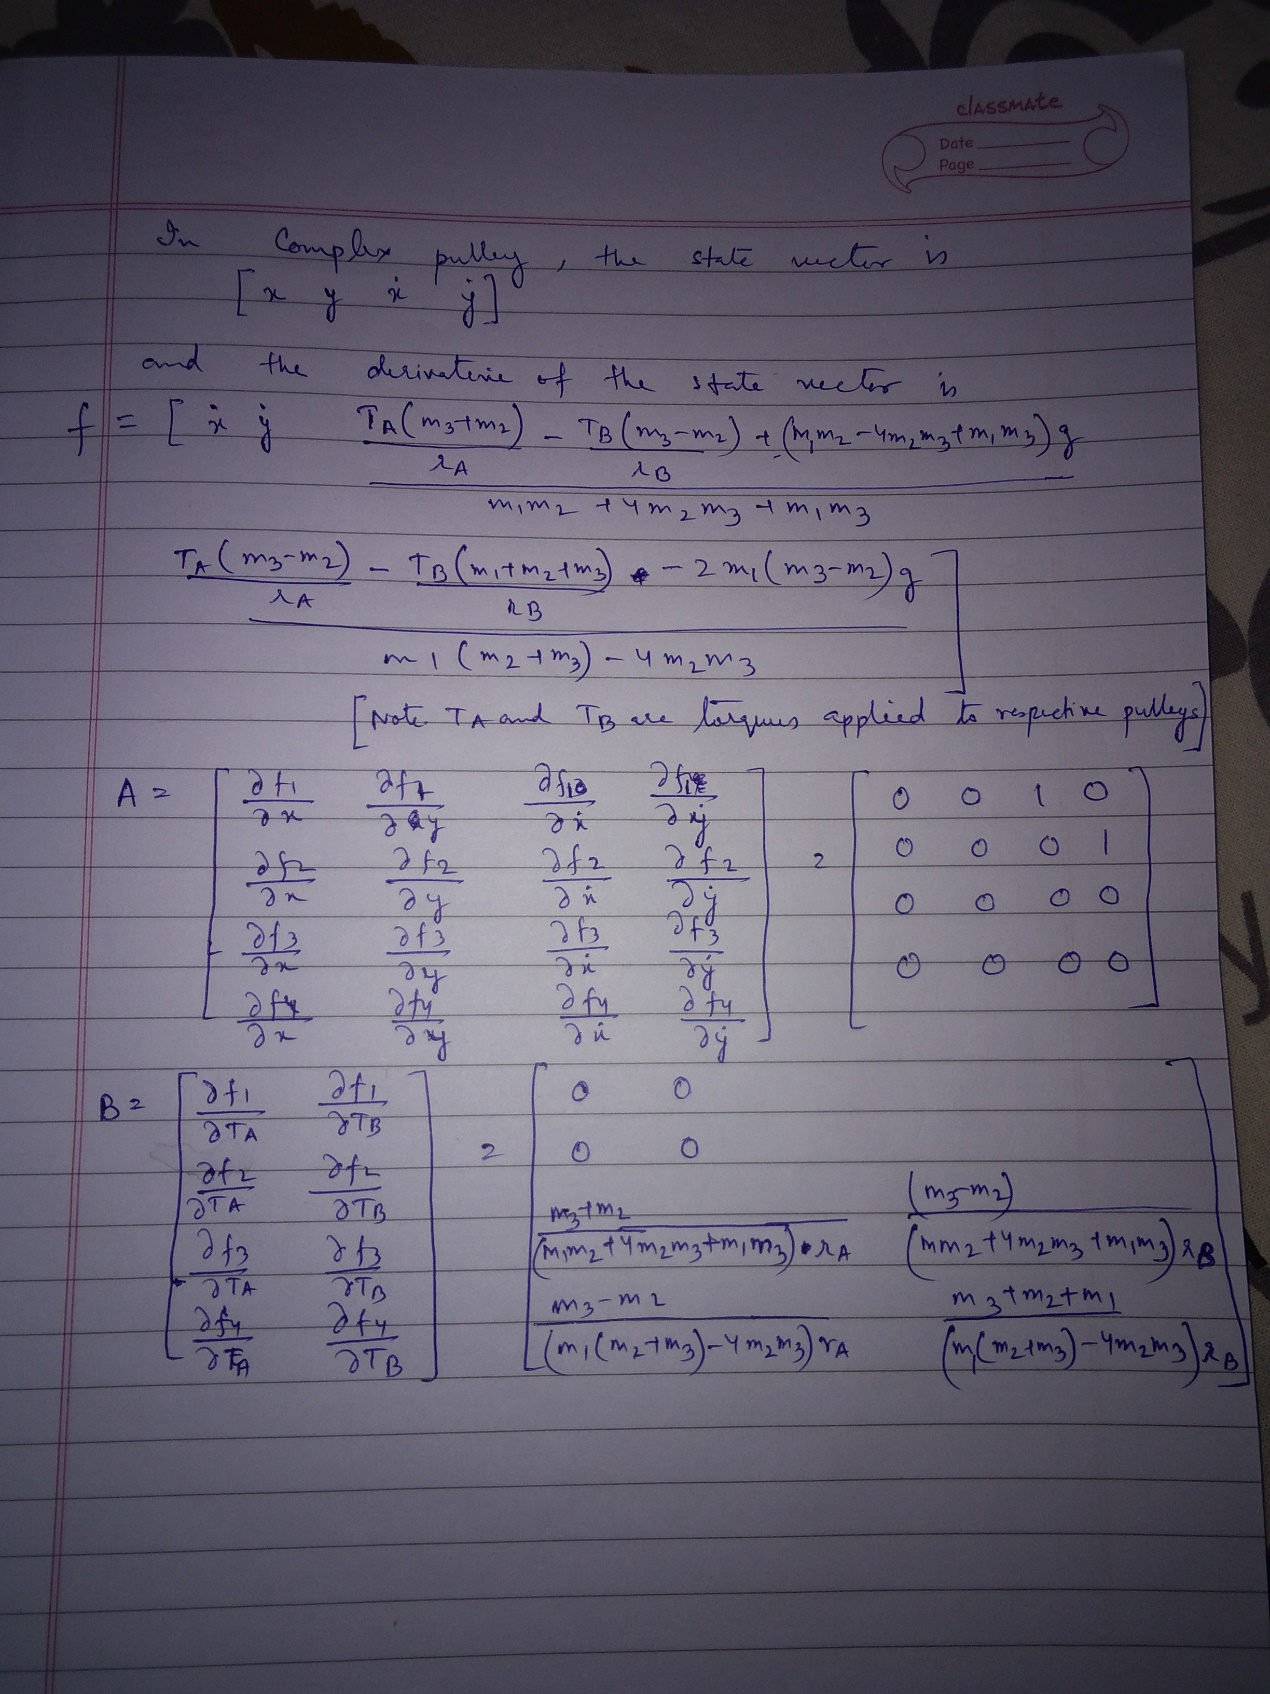 classmate
Date
Page
In Complex pulley, the state vector is
[x y ẋ ẏ]
and the derivative of the state vector is
f = [ẋ ẏ (T_A(m3+m2)/r_A - T_B(m3-m2)/r_B + (m1m2-4m2m3+m1m3)g) / (m1m2+4m2m3+m1m3)
(T_A(m3-m2)/r_A - T_B(m1+m2+m3)/r_B - 2m1(m3-m2)g) / (m1(m2+m3)-4m2m3)]
[Note T_A and T_B are torques applied to respective pulleys]
A = [∂f1/∂x ∂f1/∂y ∂f1/∂ẋ ∂f1/∂ẏ] = [0 0 1 0]
[∂f2/∂x ∂f2/∂y ∂f2/∂ẋ ∂f2/∂ẏ] [0 0 0 1]
[∂f3/∂x ∂f3/∂y ∂f3/∂ẋ ∂f3/∂ẏ] [0 0 0 0]
[∂f4/∂x ∂f4/∂y ∂f4/∂ẋ ∂f4/∂ẏ] [0 0 0 0]
B = [∂f1/∂T_A ∂f1/∂T_B] = [0 0]
[∂f2/∂T_A ∂f2/∂T_B] [0 0]
[∂f3/∂T_A ∂f3/∂T_B] [(m3+m2)/((m1m2+4m2m3+m1m3)·r_A) (m3-m2)/((mm2+4m2m3+m1m3)r_B)]
[∂f4/∂T_A ∂f4/∂T_B] [(m3-m2)/((m1(m2+m3)-4m2m3)r_A) (m3+m2+m1)/((m1(m2+m3)-4m2m3)r_B)]